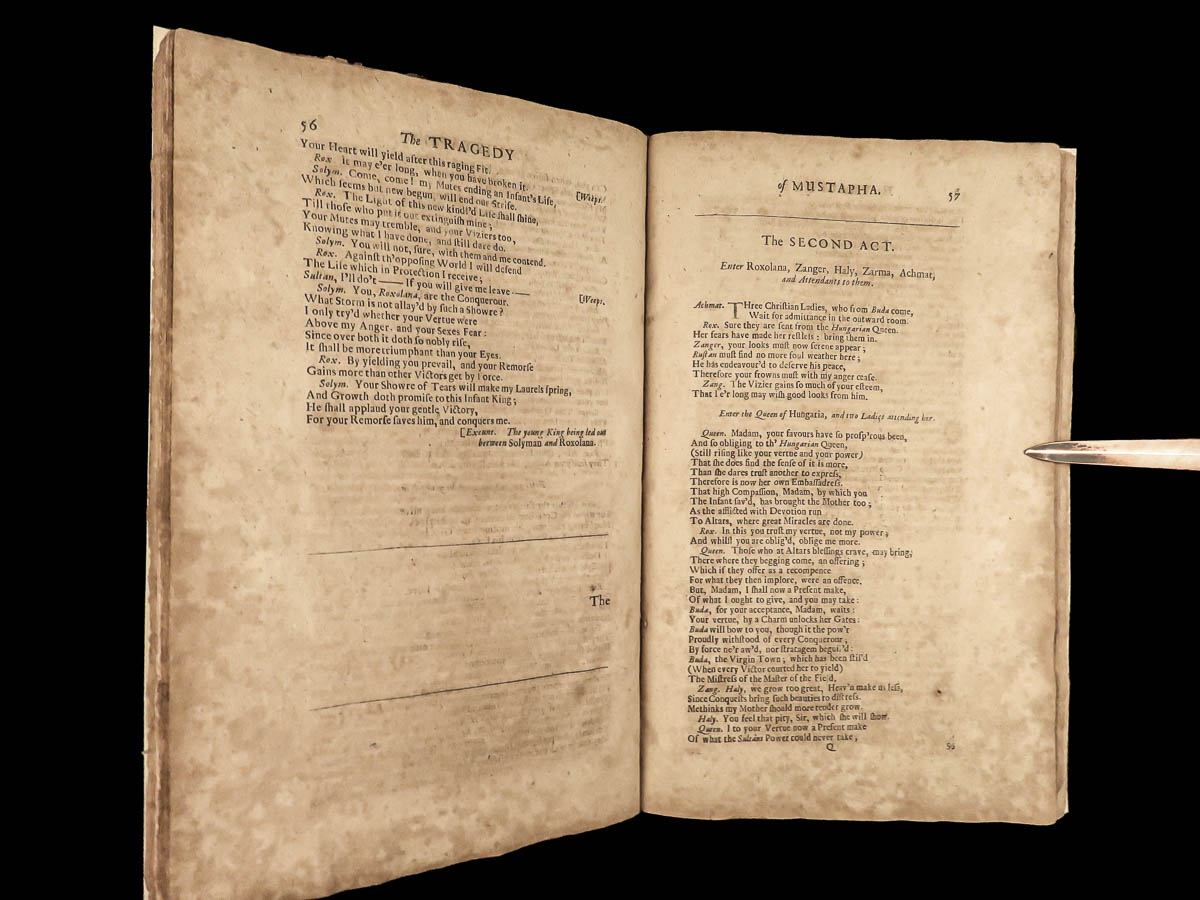 56
The TRAGEDY
Your Heart will yield after this raging Fit.
Rox It may e'er long, when you have broken it.
Solym. Come, come! my Mutes ending an Infant's Life, [Weeps.
Which ſeems but new begun, will end our Strife.
Rox. The Light of this new kindl'd Life ſhall ſhine,
Till thoſe who put it out extinguiſh mine;
Your Mutes may tremble, and your Viziers too,
Knowing what I have done, and ſtill dare do.
Solym. You will not, ſure, with them and me contend.
Rox. Againſt th'oppoſing World I will defend
The Life which in Protection I receive;
Sultan, I'll do't —— If you will give me leave —— [Weeps.
Solym. You, Roxolana, are the Conquerour.
What Storm is not allay'd by ſuch a Showre?
I only try'd whether your Vertue were
Above my Anger. and your Sexes Fear:
Since over both it doth ſo nobly riſe,
It ſhall be more triumphant than your Eyes.
Rox. By yielding you prevail, and your Remorſe
Gains more than other Victors get by Force.
Solym. Your Showre of Tears will make my Laurels ſpring,
And Growth doth promiſe to this Infant King;
He ſhall applaud your gentle Victory,
For your Remorſe ſaves him, and conquers me.
[Exeunt. The young King being led out
between Solyman and Roxolana.
The
of MUSTAPHA.
57
The SECOND ACT.
Enter Roxolana, Zanger, Haly, Zarma, Achmat,
and Attendants to them.
Achmat. THree Chriſtian Ladies, who from Buda come,
Wait for admittance in the outward room.
Rox. Sure they are ſent from the Hungarian Queen.
Her fears have made her reſtleſs: bring them in.
Zanger, your looks muſt now ſerene appear;
Ruſtan muſt find no more foul weather here;
He has endeavour'd to deſerve his peace,
Therefore your frowns muſt with my anger ceaſe.
Zang. The Vizier gains ſo much of your eſteem,
That I e'r long may wiſh good looks from him.
Enter the Queen of Hungaria, and two Ladies attending her.
Queen. Madam, your favours have ſo proſp'rous been,
And ſo obliging to th' Hungarian Queen,
(Still riſing like your vertue and your power)
That ſhe does find the ſenſe of it is more,
Than ſhe dares truſt another to expreſs,
Therefore is now her own Embaſſadreſs.
That high Compaſſion, Madam, by which you
The Infant ſav'd, has brought the Mother too;
As the afflicted with Devotion run
To Altars, where great Miracles are done.
Rox. In this you truſt my vertue, not my power;
And whilſt you are oblig'd, oblige me more.
Queen. Thoſe who at Altars bleſſings crave, may bring,
There where they begging come, an offering;
Which if they offer as a recompence
For what they then implore, were an offence.
But, Madam, I ſhall now a Preſent make,
Of what I ought to give, and you may take:
Buda, for your acceptance, Madam, waits:
Your vertue, by a Charm unlocks her Gates:
Buda will bow to you, though it the pow'r
Proudly withſtood of every Conquerour;
By force ne'r aw'd, nor ſtratagem beguil'd:
Buda, the Virgin Town; which has been ſtil'd
(When every Victor courted her to yield)
The Miſtreſs of the Maſter of the Field.
Zang. Haly, we grow too great, Heav'n make us leſs,
Since Conqueſts bring ſuch beauties to diſtreſs.
Methinks my Mother ſhould more tender grow.
Haly. You feel that pity, Sir, which ſhe will ſhow.
Queen. I to your Vertue now a Preſent make
Of what the Sultans Power could never take;
Q